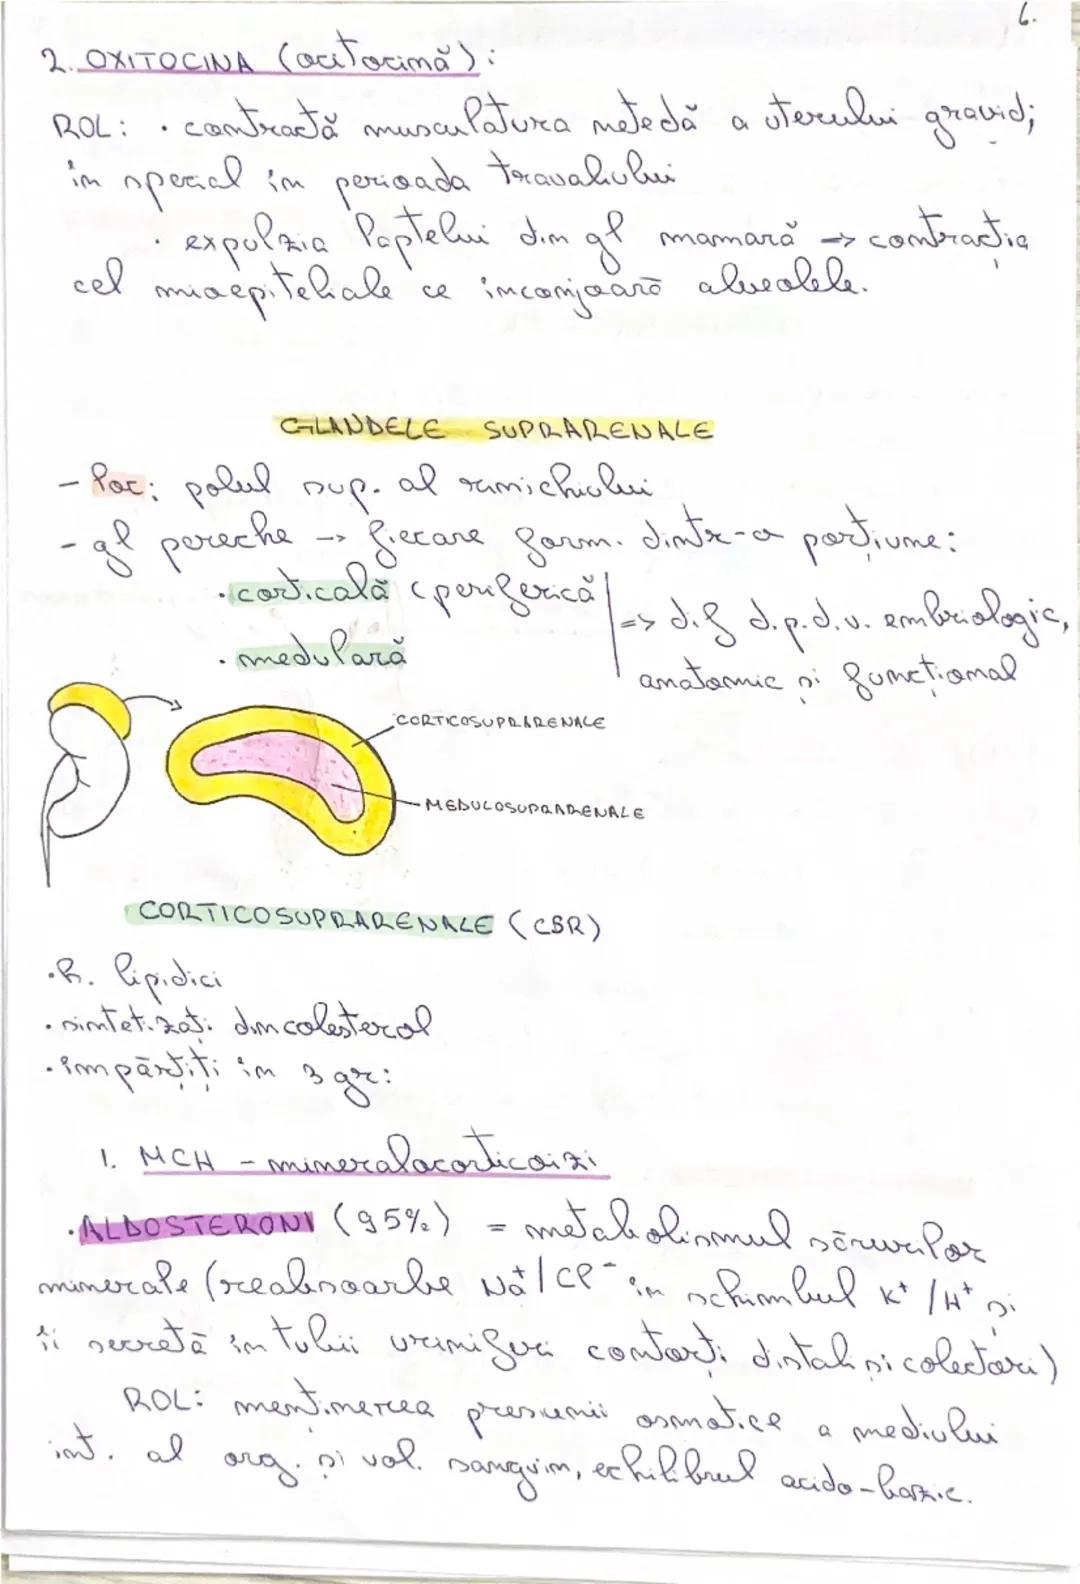 6.
2. OXITOCINA (ocitocină):
ROL: · contractă musculatura netedă a uterului gravid;
în special în perioada travaliului
· expulzia laptelui din gl mamară -> contracția
cel mioepiteliale ce înconjoară alveolele.
GLANDELE SUPRARENALE
- loc: polul sup. al rinichiului
- gl pereche -> fiecare form. dintr-o porțiune:
· corticală (periferică)
=> dif d.p.d.v. embriologic,
· medulară
anatomic și funcțional
CORTICOSUPRARENALE
MEDULOSUPRARENALE
CORTICOSUPRARENALE (CSR)
· h. lipidici
· sintetizați din colesterol
· împărțiți în 3 gr:
1. MCH - mineralocorticoizi
· ALDOSTERONI (95%) = metabolismul sărurilor
minerale (reabsoarbe Na⁺/Cl⁻ în schimbul K⁺/H⁺ și
îi secretă în tubii uriniferi contorți distali și colectori)
ROL: menținerea presiunii osmotice a mediului
int. al org. și vol. sanguin, echilibrul acido-bazic.